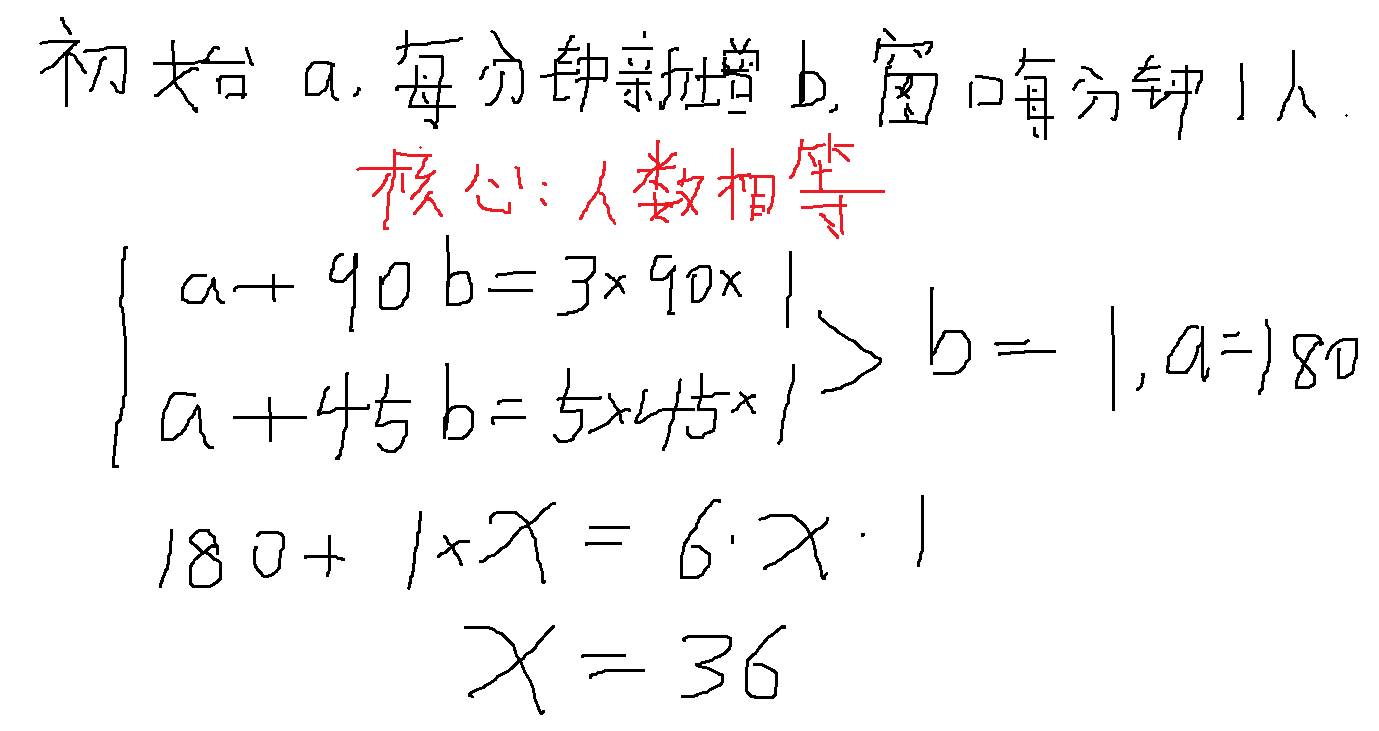 初始 a. 每分钟新增 b. 窗口每分钟 1 人.
核心: 人数相等
a + 90 b = 3 × 90 × 1
a + 45 b = 5 × 45 × 1 > b = 1, a = 180
180 + 1 × x = 6 · x · 1
x = 36